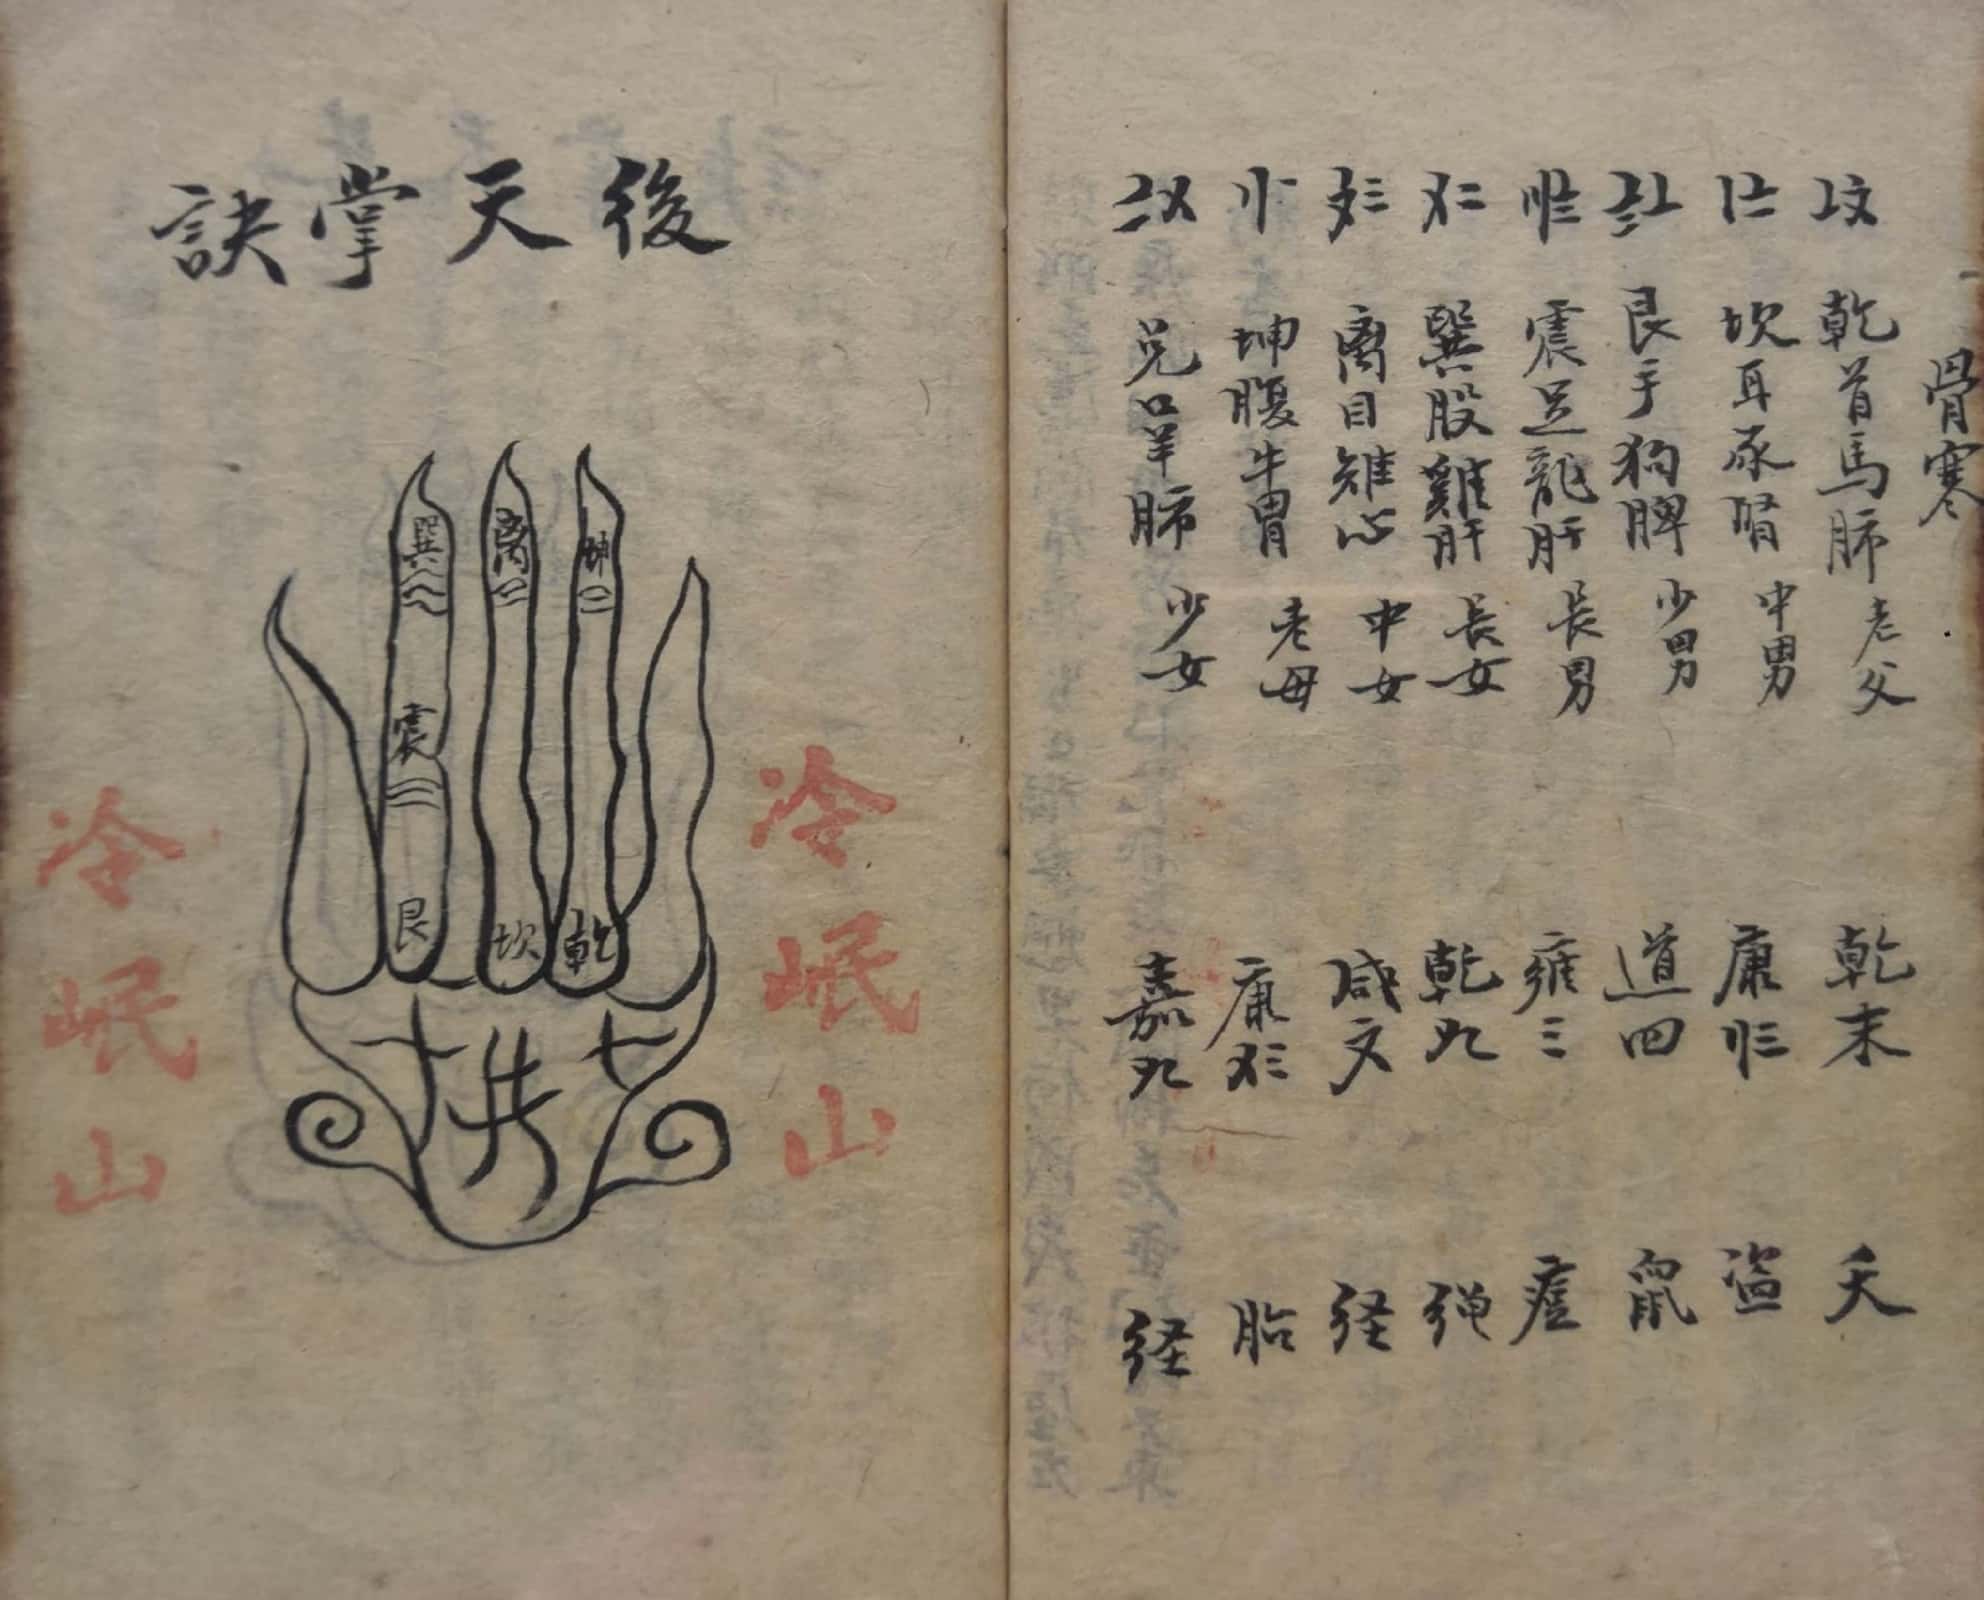 骨寒
乾首馬肺 老父 乾末 天
坎耳豕腎 中男 康 盗
艮手狗脾 少男 道四 鼠
震足龍肝 長男 雍三 瘧
巽股雞肝 長女 乾九
离目雉心 中女 咸文 经
坤腹牛胃 老母 康 胎
兑口羊肺 少女 嘉九 经
後天掌訣
巽
离
坤
震
艮
坎
乾
冷岷山
冷岷山